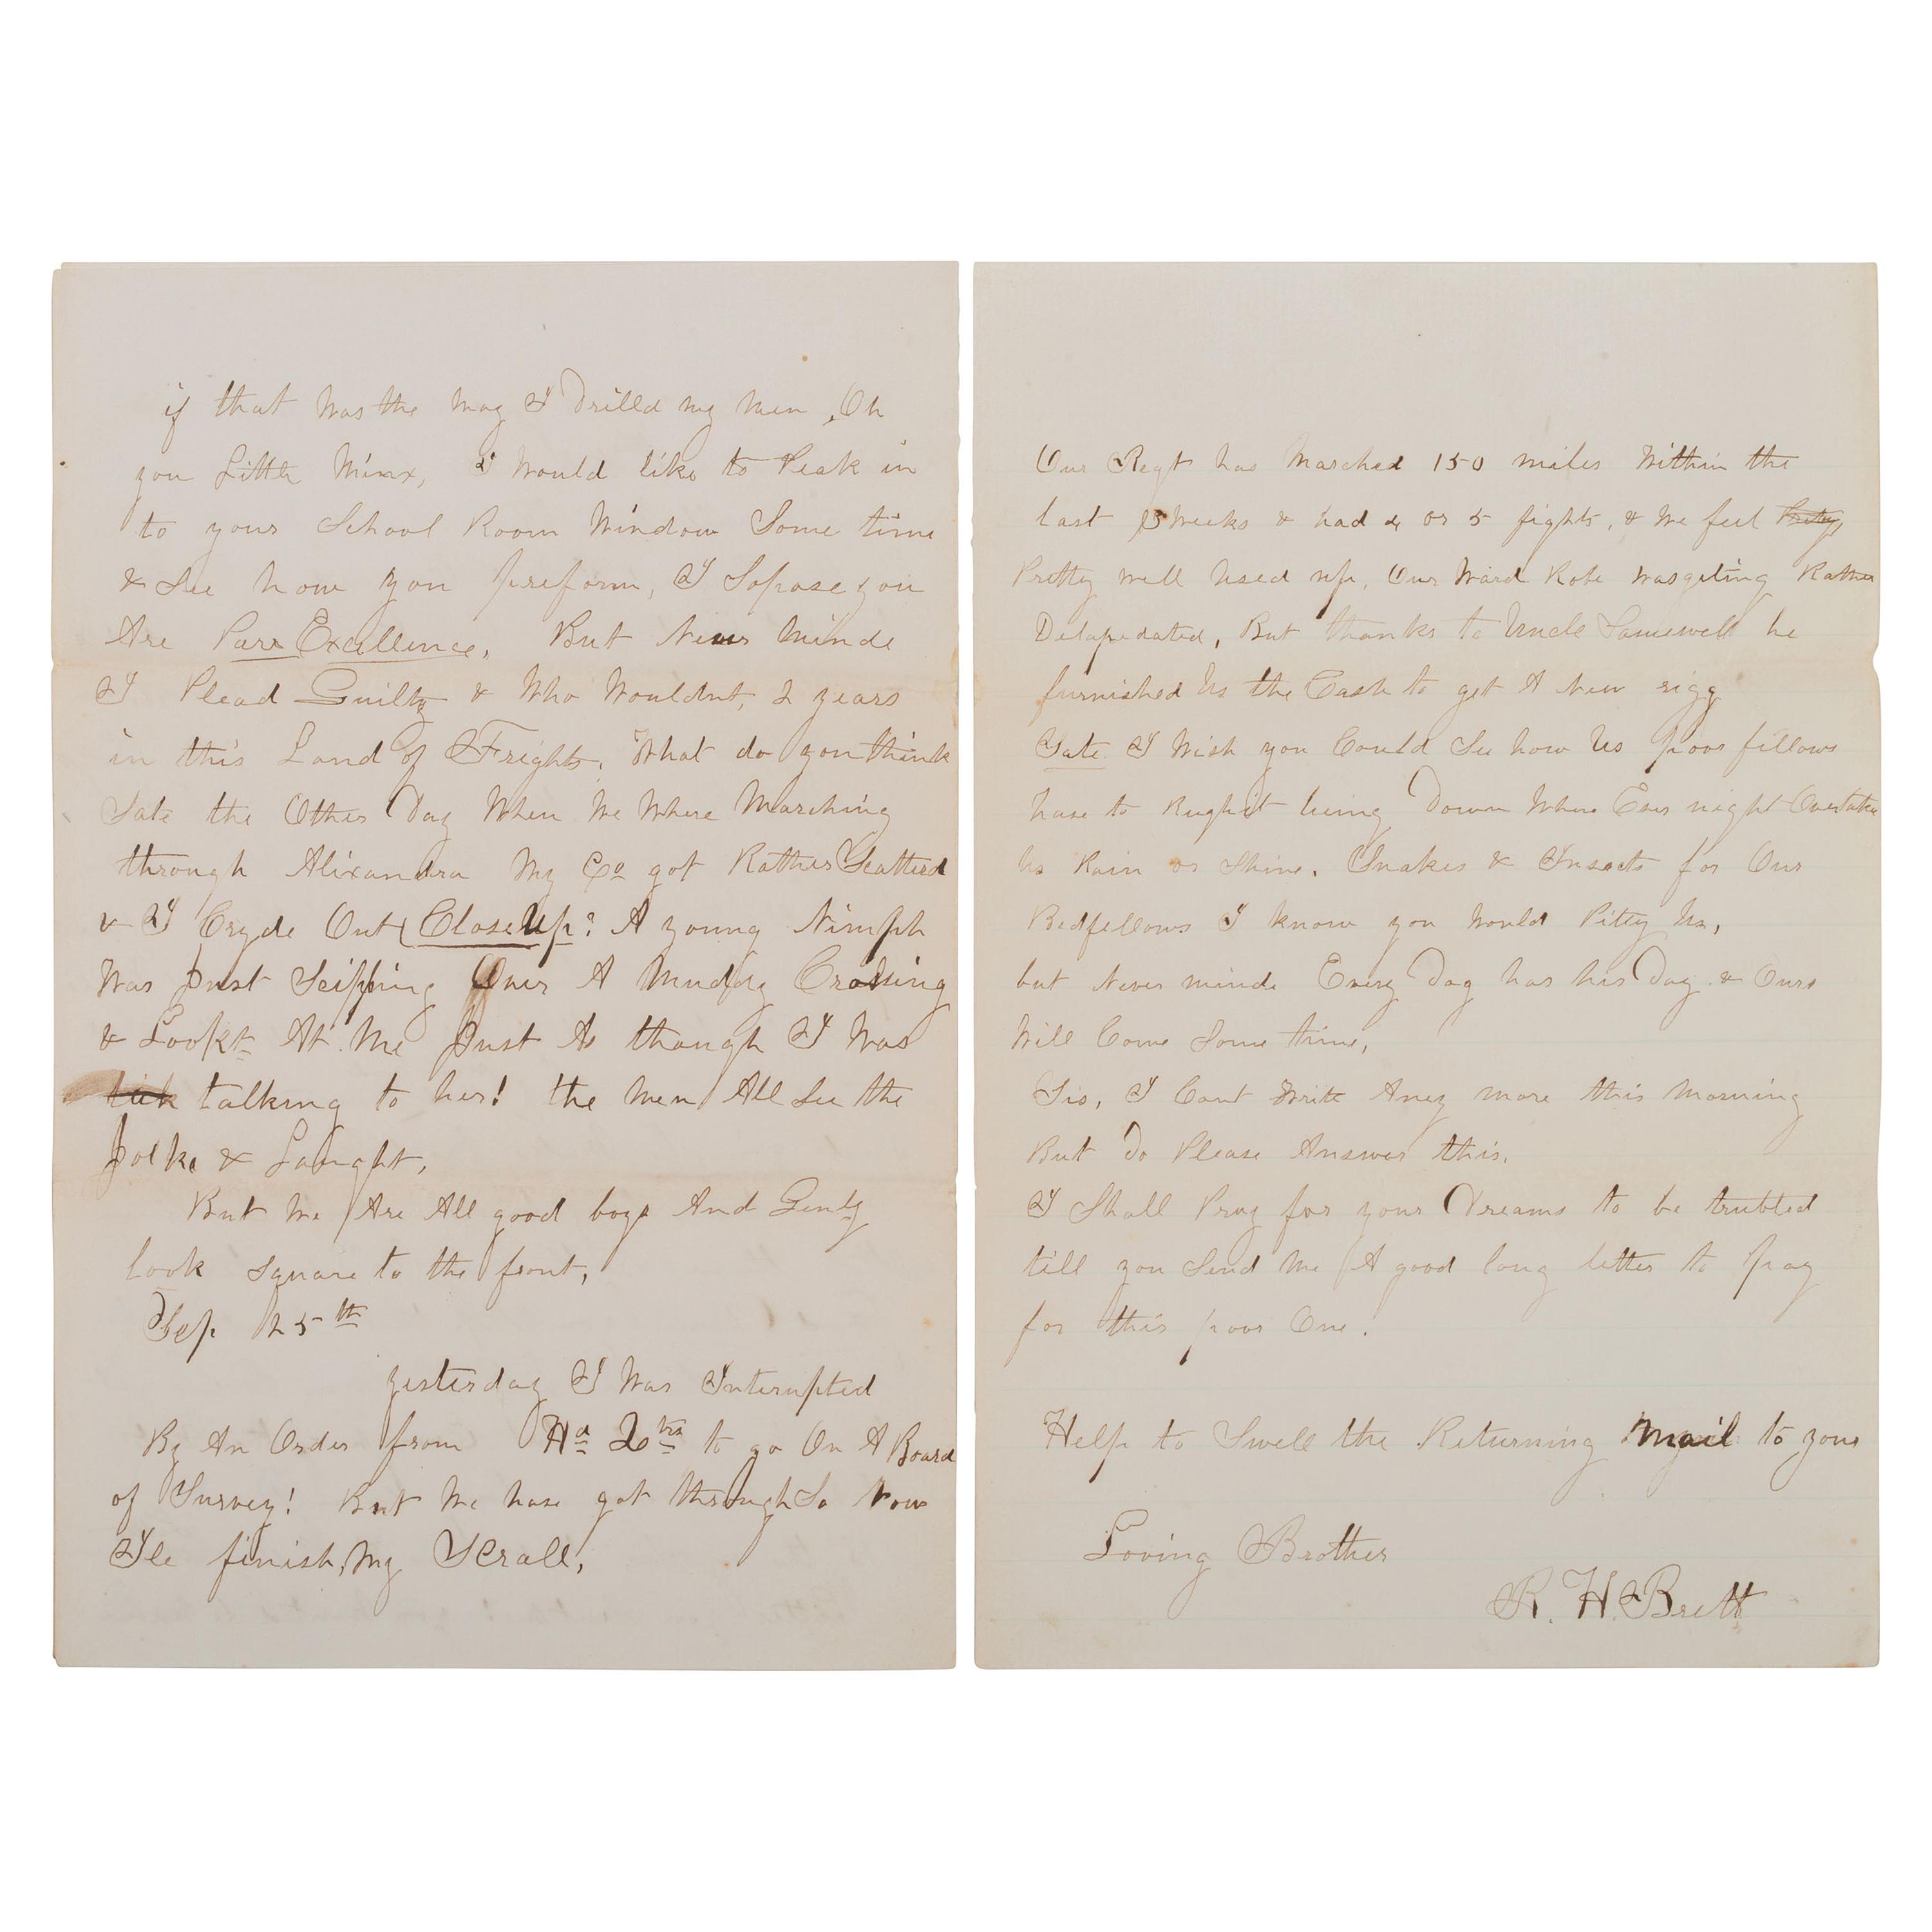 if that was the way I Drilld my men, Oh
you Little Minx, I would like to Peak in
to your School Room Window Some time
& See how you preform, I Sopose you
Are Parr Excellence, But Never Minde
I Plead Guilty & Who Wouldnt, 2 years
in this Land of Frights, What do you think
Sate the Other Day When We Where Marching
through Alixandra My Co got Rather Scatterd
& I Cryde Out Close Up? A young Nimph
Was Just Scipping Over A Muddy Crossing
& Lookt At Me Just As though I Was
talking to her! the Men All See the
Joke & Laught,
But We Are All good boys And Genly
look square to the front,
Sep 25th
yesterday I Was Interupted
By An Order from Hd 2trs to go On A Board
of Survey! But We have got through So Now
Ile finish My Scrall,
Our Regt has Marched 150 miles Within the
last 3 Weeks & had 4 or 5 fights, & We feel Pretty
Pretty well Used up, Our Ward Robe was geting Rather
Delapedated, But thanks to Uncle Samewell he
furnished Us the Cash to get A New rigg
Sate I Wish you Could See how Us poor fellows
have to Rugh it lieing Down Where Ever night Overtakes
Us Rain or Shine, Snakes & Insects for Our
Bedfellows I know you Would Pitty Us,
but Never minde Every Dog has his Day & Ours
Will Come Some time,
Sis, I Cant Write Aney more this Morning
But Do Please Answer this,
I Shall Pray for your Dreams to be trubled
till you Send Me A good long letter to pay
for this poor One.
Help to Swell the Returning Mail to your
Loving Brother
R. H. Brett